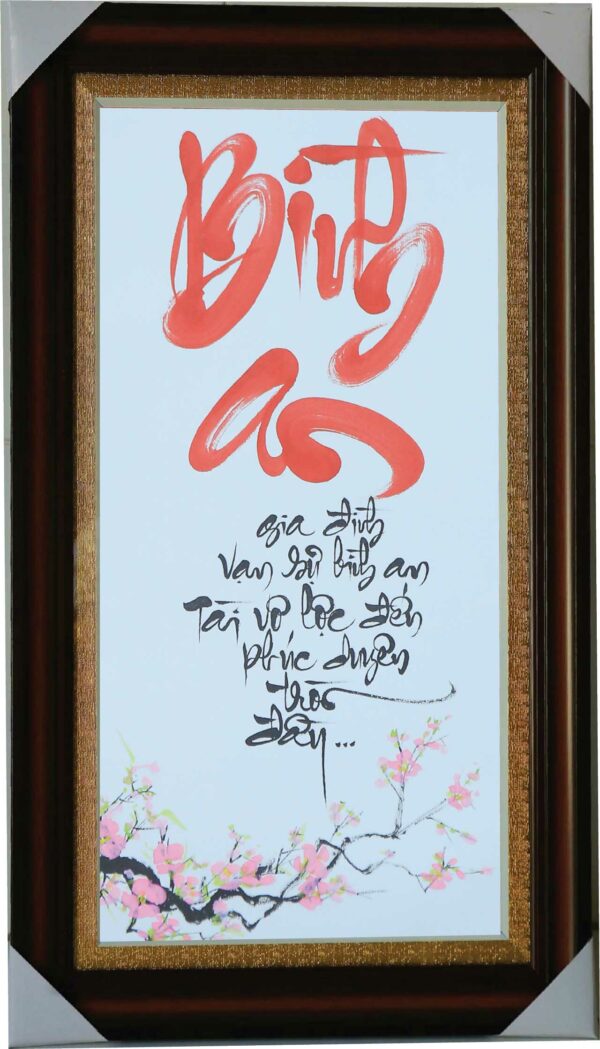 Bình
an
gia đình
vạn sự bình an
Tài vô lộc đến
phúc duyên
tràn
đầy...